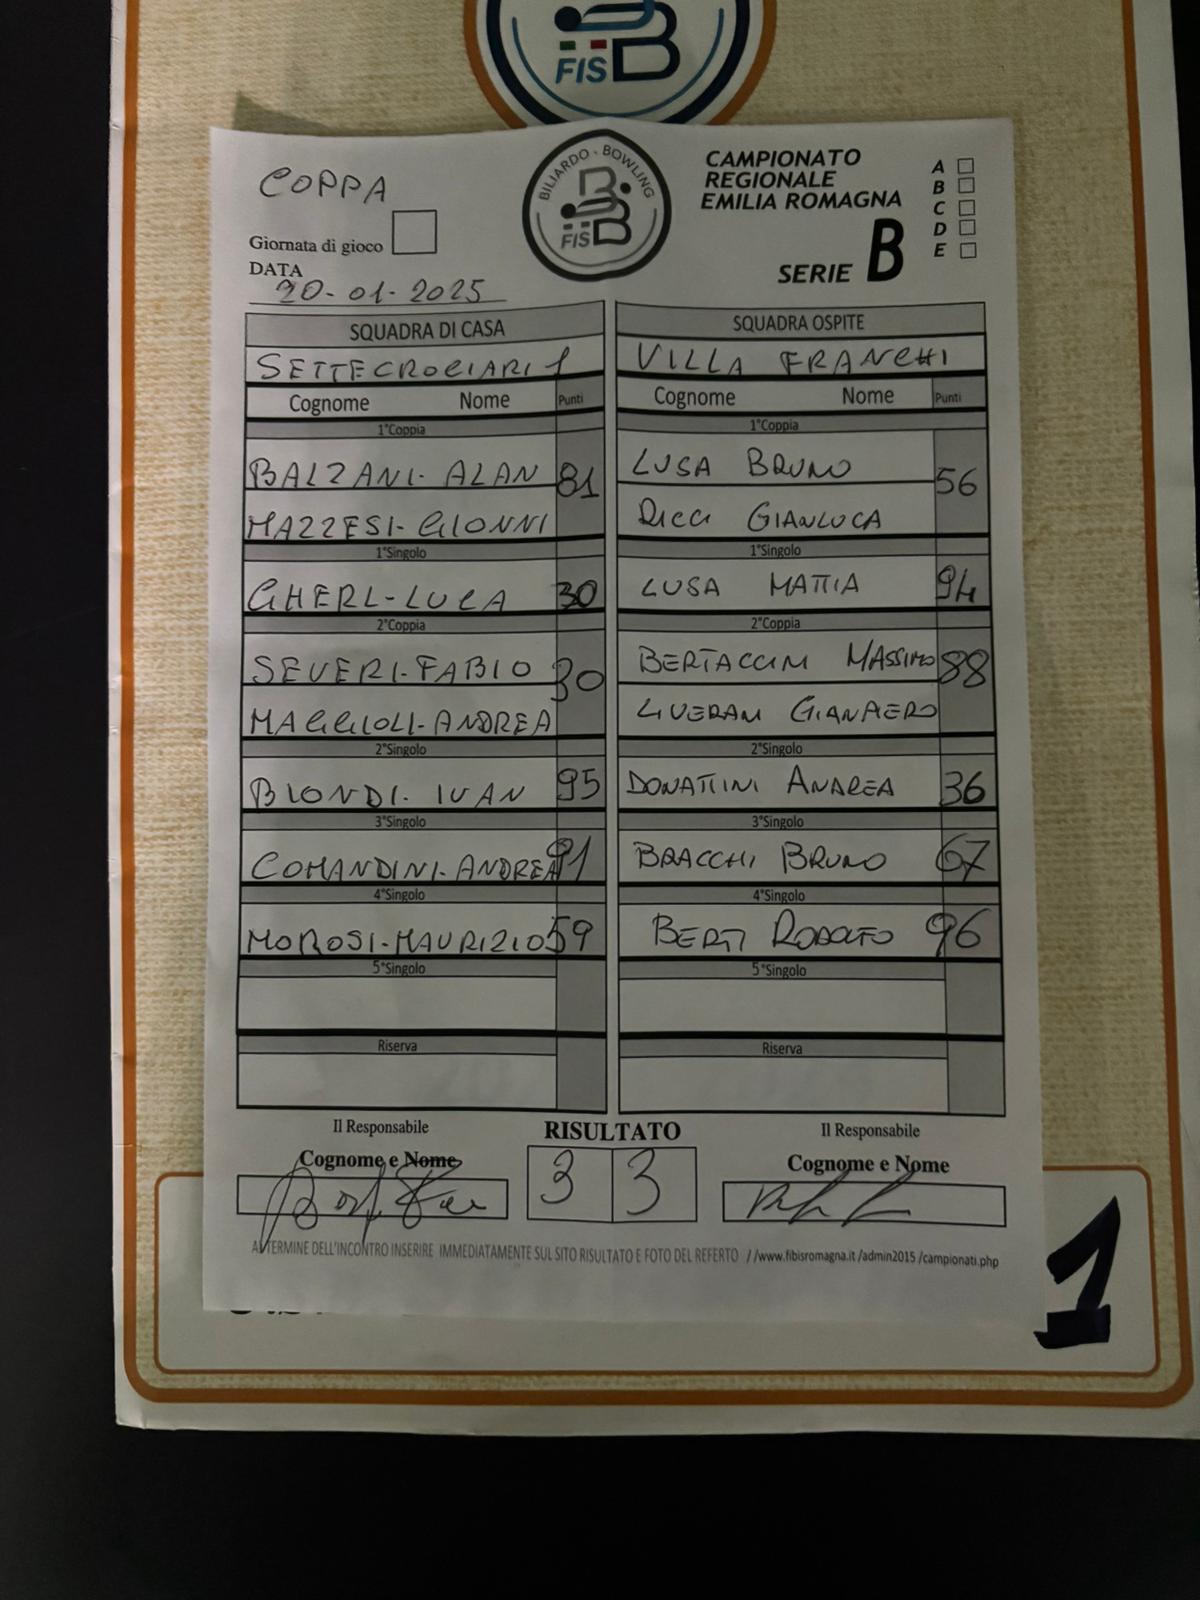 FISB
COPPA
BILIARDO - BOWLING
FISB
CAMPIONATO
REGIONALE
EMILIA ROMAGNA
SERIE B
A
B
C
D
E
Giornata di gioco
DATA
20-01-2025
SQUADRA DI CASA SQUADRA OSPITE
SETTECROCIARI 1 VILLA FRANCHI
Cognome Nome Punti Cognome Nome Punti
1°Coppia 1°Coppia
BALZANI-ALAN 81 LUSA BRUNO 56
MAZZESI-GIONNI RICCI GIANLUCA
1°Singolo 1°Singolo
GHERI-LUCA 30 LUSA MATTIA 94
2°Coppia 2°Coppia
SEVERI-FABIO 30 BERTACCINI MASSIMO 88
MAGGIOLI-ANDREA LIVERANI GIANPIERO
2°Singolo 2°Singolo
BIONDI-IVAN 95 DONATTINI ANDREA 36
3°Singolo 3°Singolo
COMANDINI-ANDREA 91 BRACCHI BRUNO 67
4°Singolo 4°Singolo
MOROSI-MAURIZIO 59 BERTI RODOLFO 96
5°Singolo 5°Singolo
Riserva Riserva
Il Responsabile RISULTATO Il Responsabile
Cognome e Nome 3 3 Cognome e Nome
AL TERMINE DELL'INCONTRO INSERIRE IMMEDIATAMENTE SUL SITO RISULTATO E FOTO DEL REFERTO //www.fibisromagna.it /admin2015 /campionati.php
1